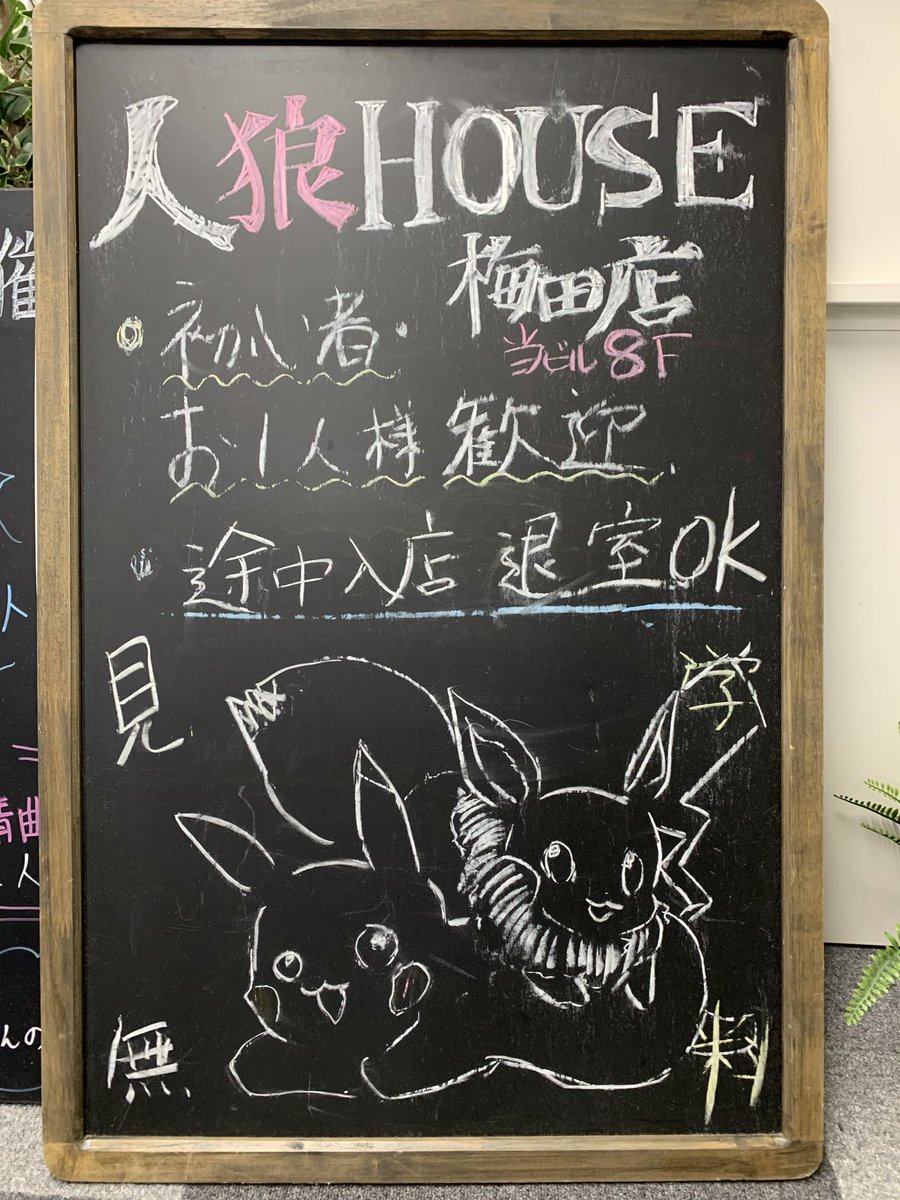 人狼HOUSE
梅田店
当ビル8F
初心者・
お1人様歓迎
途中入店 退室OK
見学
無料
催
情曲
人
んの